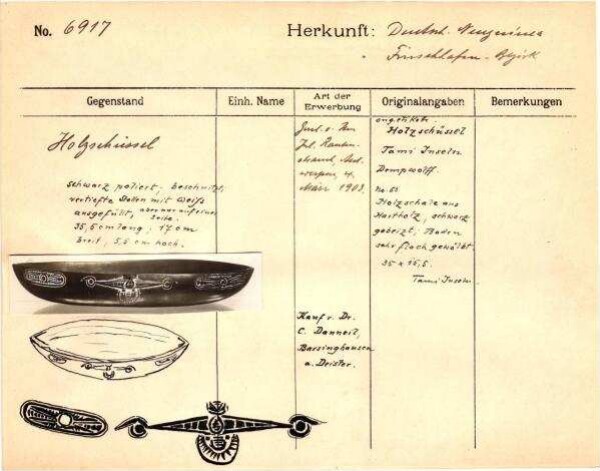 No. 6917
Herkunft: Deutsch. Neuguinea
" Finschhafen-Bezirk
Gegenstand
Einh. Name
Art der Erwerbung
Originalangaben
Bemerkungen
Holzschüssel
schwarz poliert, beschnitzt,
vertiefte Stellen mit Weiß
ausgefüllt, aber nur auf einer
Seite.
35,5 cm lang; 17 cm
breit; 5,5 cm hoch.
März 1903.
Kauf v. Dr.
C. Danneil,
Barsinghausen
a. Deister.
Holzschüssel
Tami Inseln
Dempwolff.
Holzschale aus
Hartholz, schwarz
gebeizt; Boden
sehr flach gewölbt.
35 x 16,5.
Tami Inseln